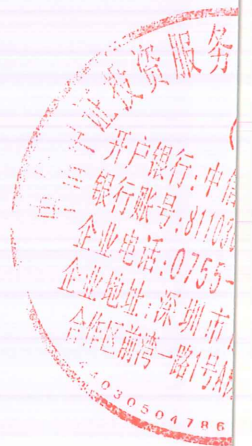 中证投资服务
开户银行:中信
银行账号:811030
企业电话:0755-
企业地址:深圳市
合作区前湾一路1号A
030504786